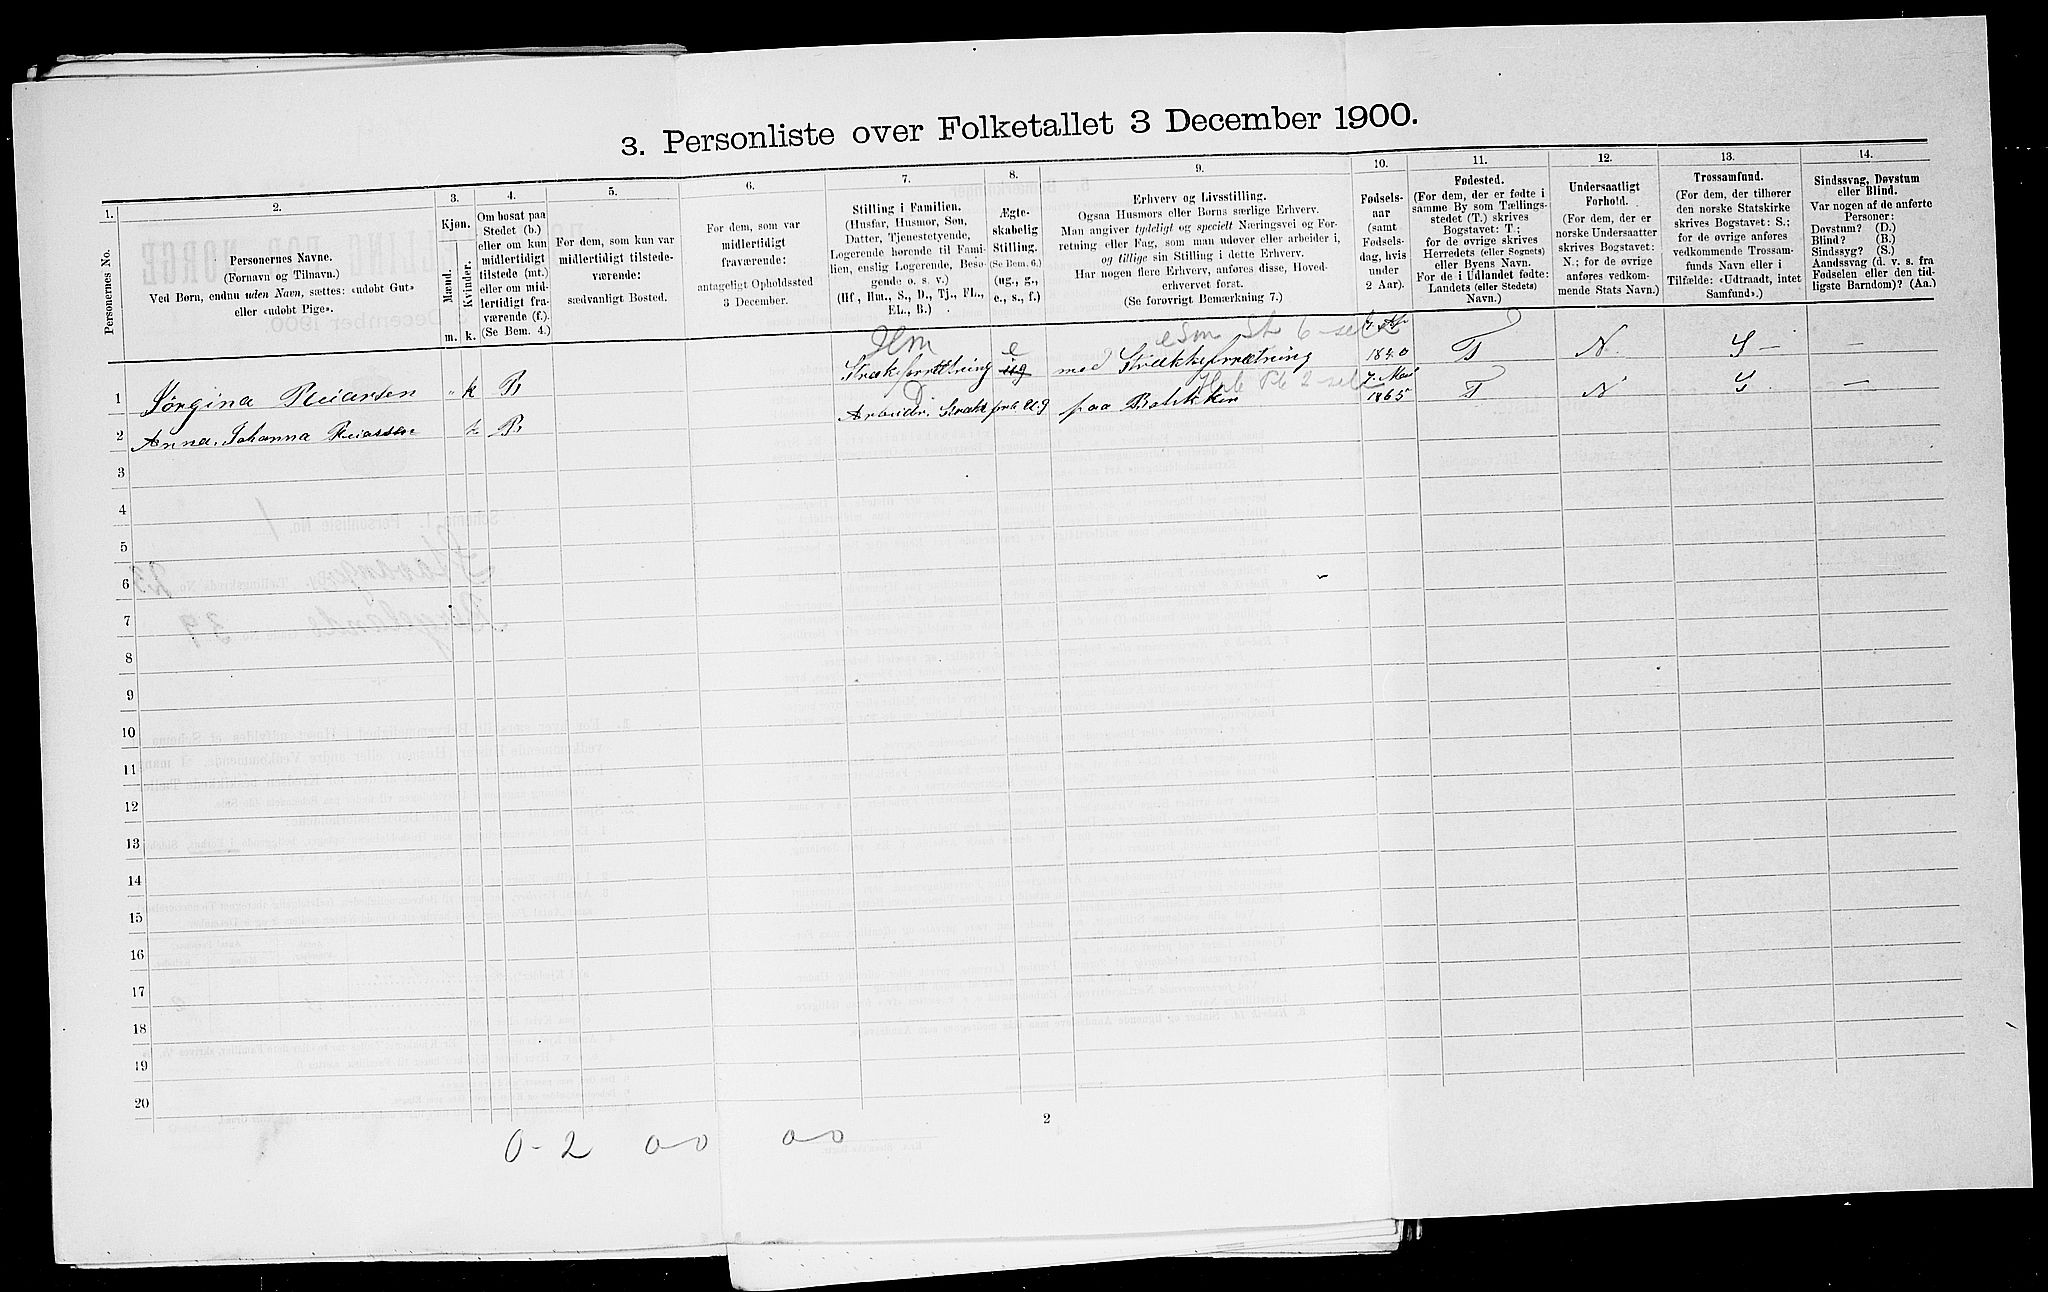 3. Personliste over Folketallet 3 December 1900.
1.
Personernes No.
2.
Personernes Navne.
(Fornavn og Tilnavn.)
Ved Børn, endnu uden Navn, sættes: «udøbt Gut»
eller «udøbt Pige».
3.
Kjøn.
Mænd.
Kvinder.
m. k.
4.
Om bosat paa
Stedet (b.)
eller om kun
midlertidigt
tilstede (mt.)
eller om mid-
lertidigt fra-
værende (f.).
(Se Bem. 4.)
5.
For dem, som kun var
midlertidigt tilstede-
værende:
sædvanligt Bosted.
6.
For dem, som var
midlertidigt
fraværende:
antageligt Opholdssted
3 December.
7.
Stilling i Familien.
(Husfar, Husmor, Søn,
Datter, Tjenestetyende,
Logerende hørende til Fami-
lien, enslig Logerende, Besø-
gende o. s. v.)
(Hf., Hm., S., D., Tj., FL.,
EL., B.)
8.
Ægte-
skabelig
Stilling.
(Se Bem. 6.)
(ug., g.,
e., s., f.)
9.
Erhverv og Livsstilling.
Ogsaa Husmors eller Børns særlige Erhverv.
Man angiver tydeligt og specielt Næringsvei og For-
retning eller Fag, som man udøver eller arbeider i,
og tillige sin Stilling i dette Erhverv.
Har nogen flere Erhverv, anføres disse, Hoved-
erhvervet forst.
(Se forøvrigt Bemærkning 7.)
10.
Fødsels-
aar
(samt
Fødsels-
dag, hvis
under
2 Aar).
11.
Fødested.
(For dem, der er fødte i
samme By som Tællings-
stedet (T.) skrives
Bogstavet: T.;
for de øvrige skrives
Herredets (eller Sognets)
eller Byens Navn.
For de i Udlandet fødte:
Landets (eller Stedets)
Navn.)
12.
Undersaatligt
Forhold.
(For dem, der er
norske Undersaatter
skrives Bogstavet:
N.; for de øvrige
anføres vedkom-
mende Stats Navn.)
13.
Trossamfund.
(For dem, der tilhører
den norske Statskirke
skrives Bogstavet: S.;
for de øvrige anføres
vedkommende Trossam-
funds Navn eller i
Tilfælde: «Udtraadt, intet
Samfund».)
14.
Sindssvag, Døvstum
eller Blind.
Var nogen af de anførte
Personer:
Døvstum? (D.)
Blind? (B.)
Sindssyg? (S.)
Aandssvag (d. v. s. fra
Fødselen eller den tid-
ligste Barndom)? (Aa.)
Hm e
1 Sørgina Reiersen k B ug med Strækkeforretning 1840 T N. S — —
D
2 Anna. Johanna k B U.g paa 7. Mai 1865 T N S. —
3
4
5
6
7
8
9
10
11
12
13
14
15
16
17
18
19
20
2
0-2 00 00